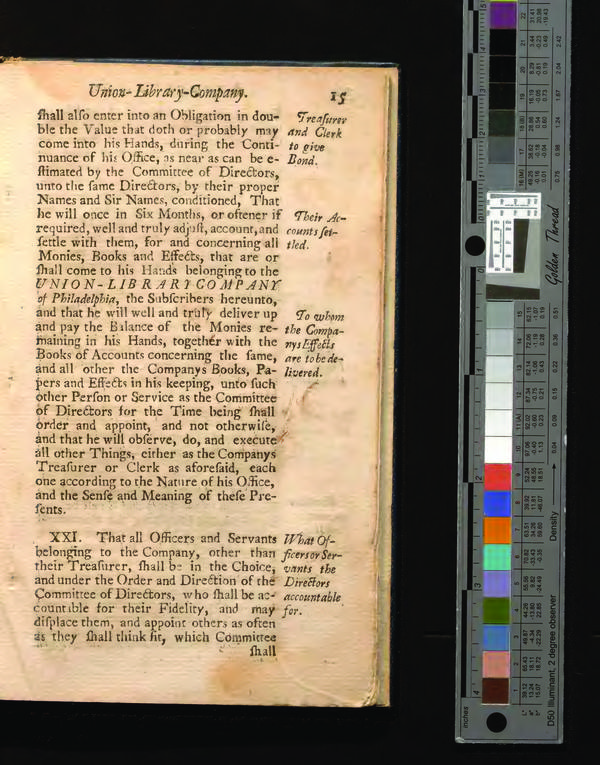 Union-Library-Company. 15
ſhall alſo enter into an Obligation in dou-
ble the Value that doth or probably may
come into his Hands, during the Conti-
nuance of his Office, as near as can be e-
ſtimated by the Committee of Directors,
unto the ſame Directors, by their proper
Names and Sir Names, conditioned, That
he will once in Six Months, or oftener if
required, well and truly adjuſt, account, and
ſettle with them, for and concerning all
Monies, Books and Effects, that are or
ſhall come to his Hands belonging to the
UNION-LIBRARY COMPANY
of Philadelphia, the Subſcribers hereunto,
and that he will well and truly deliver up
and pay the Balance of the Monies re-
maining in his Hands, together with the
Books of Accounts concerning the ſame,
and all other the Companys Books, Pa-
pers and Effects in his keeping, unto ſuch
other Perſon or Service as the Committee
of Directors for the Time being ſhall
order and appoint, and not otherwiſe,
and that he will obſerve, do, and execute
all other Things, either as the Companys
Treaſurer or Clerk as aforeſaid, each
one according to the Nature of his Office,
and the Senſe and Meaning of theſe Pre-
ſents.
XXI. That all Officers and Servants
belonging to the Company, other than
their Treaſurer, ſhall be in the Choice,
and under the Order and Direction of the
Committee of Directors, who ſhall be ac-
countable for their Fidelity, and may
diſplace them, and appoint others as often
as they ſhall think fit, which Committee
ſhall
Treaſurer
and Clerk
to give
Bond.
Their Ac-
counts ſet-
tled.
To whom
the Compa-
nys Effects
are to be de-
livered.
What Of-
ficers or Ser-
vants the
Directors
accountable
for.
Golden Thread
Density
D50 Illuminant, 2 degree observer
inches